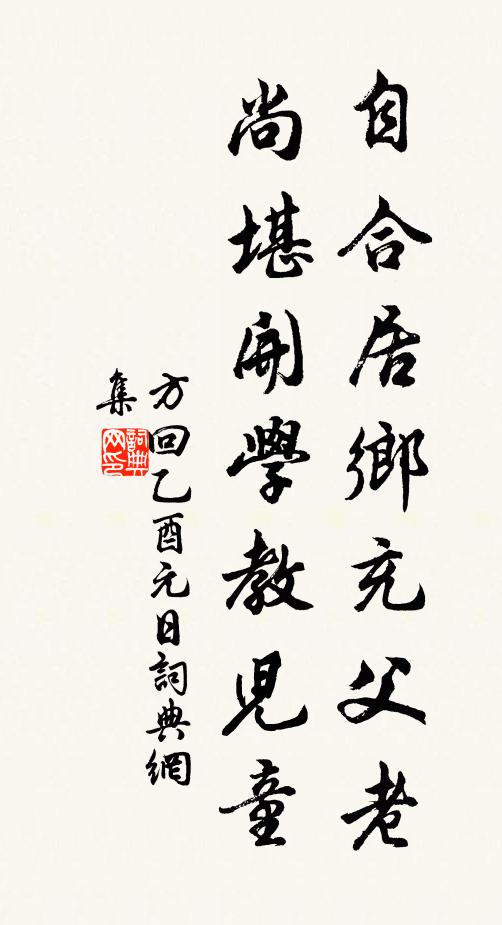 自合居鄉充父老
尚堪開學教児童
方回乙酉元日詞典網
集
詞典
网印